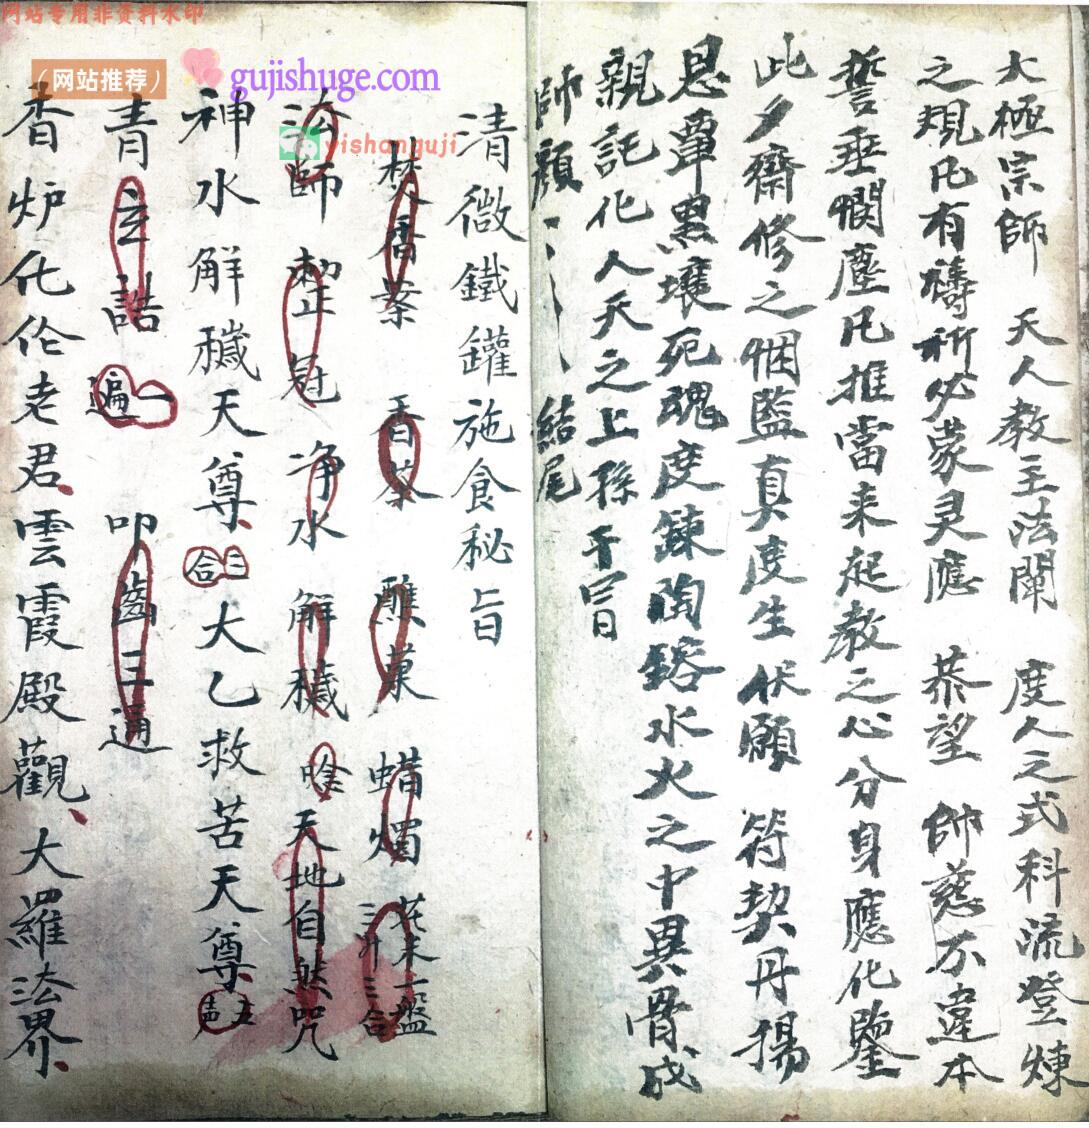 网站专用非资料水印
（网站推荐）
gujishuge.com
yishanguji
大極宗師 天人教主法闡 度人之式科流登煉
之規凡有禱祈必蒙灵應 恭望 帥慈不違本
誓垂憫塵凡推當来起教之心分身應化鑒
此夕齋修之悃監真度生伏願 符契丹揚
恩覃黒壤死魂度鍊陶鎔水火之中異骨成
親託化人天之上
帥顔 結尾
清微鐵罐施食秘旨
焚香案 香茶 醮菓 蜡燭 花米一盤 三升三合
法師 整冠 净水 解穢 唸 天地自然咒
神水解穢天尊三合大乙救苦天尊五声
青玄誥一遍 叩齒三通
香炉化伦老君雲霞殿觀大羅法界